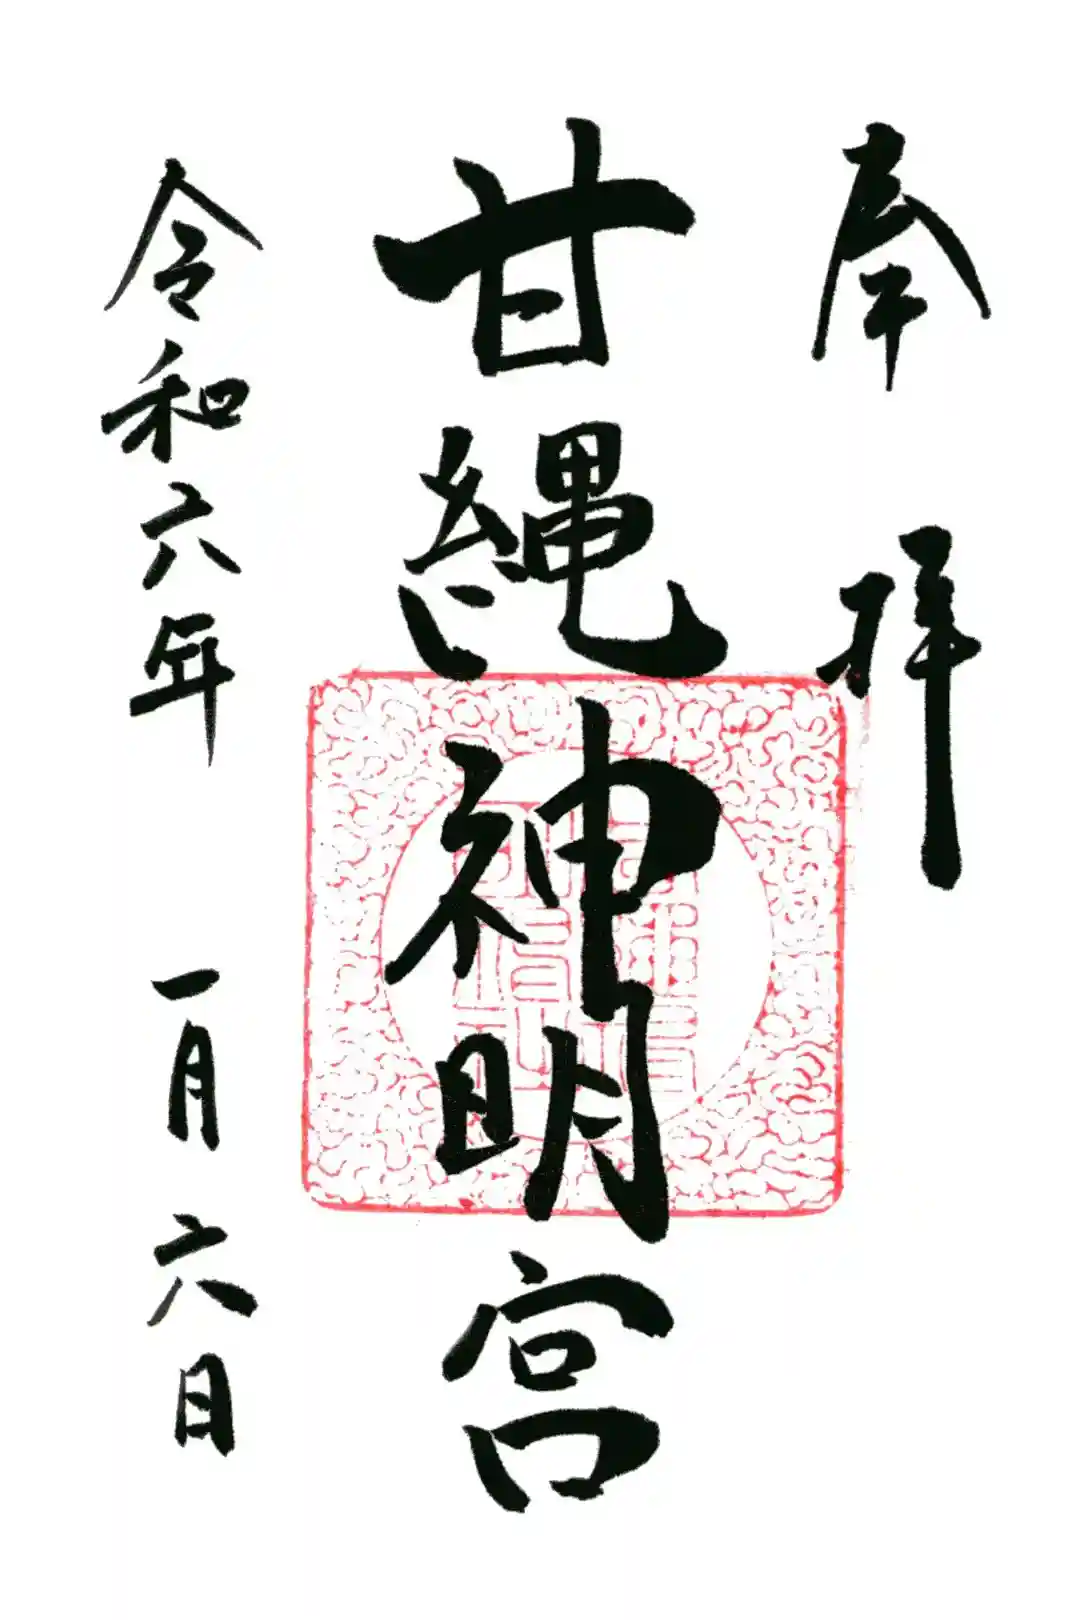 奉拝
甘縄神明宮
令和六年 一月 六日